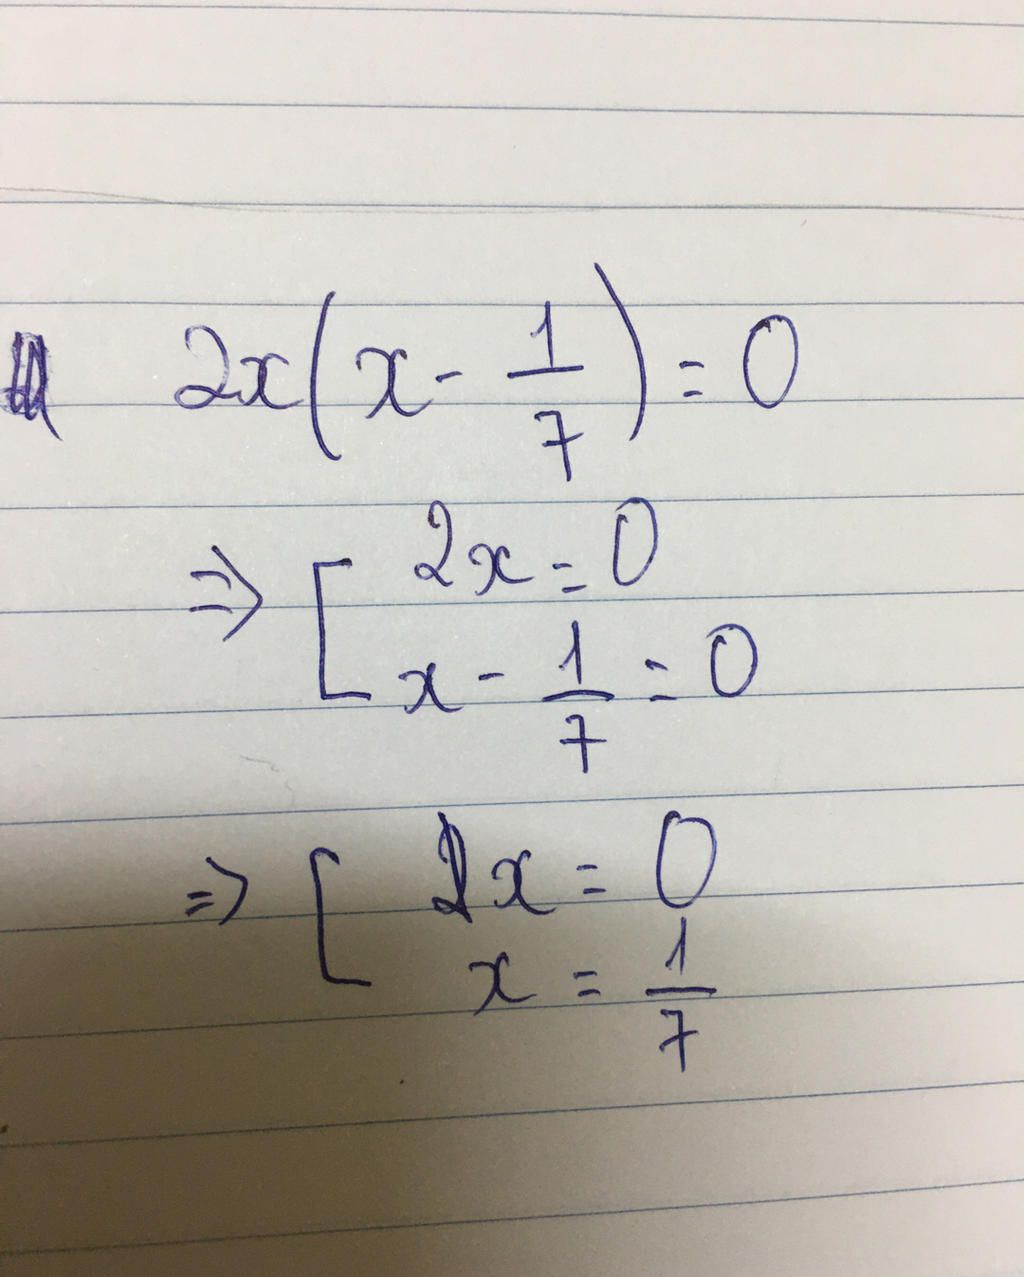 2x(x - 1/7) = 0
=> [ 2x = 0
x - 1/7 = 0
=> [ x = 0
x = 1/7